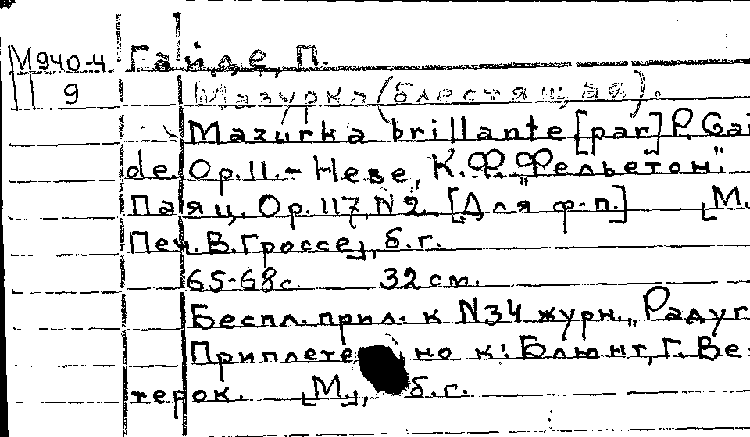 М940-4 Гайде, П.
9 Мазурка (блестящая).
Mazurka brillante [par] P. Gai
de. Op. 11. - Незе, К. Ф. Ф. „Фельетон".
Паяц. Ор. 117, N2. [Для ф-п.] [М.
Печ. В. Гроссе], б. г.
65-68 с. 32 см.
Беспл. прил. к N34 журн. „Радуг
но к: Блюнг, Г. Ве
терок. [М.], б. г.